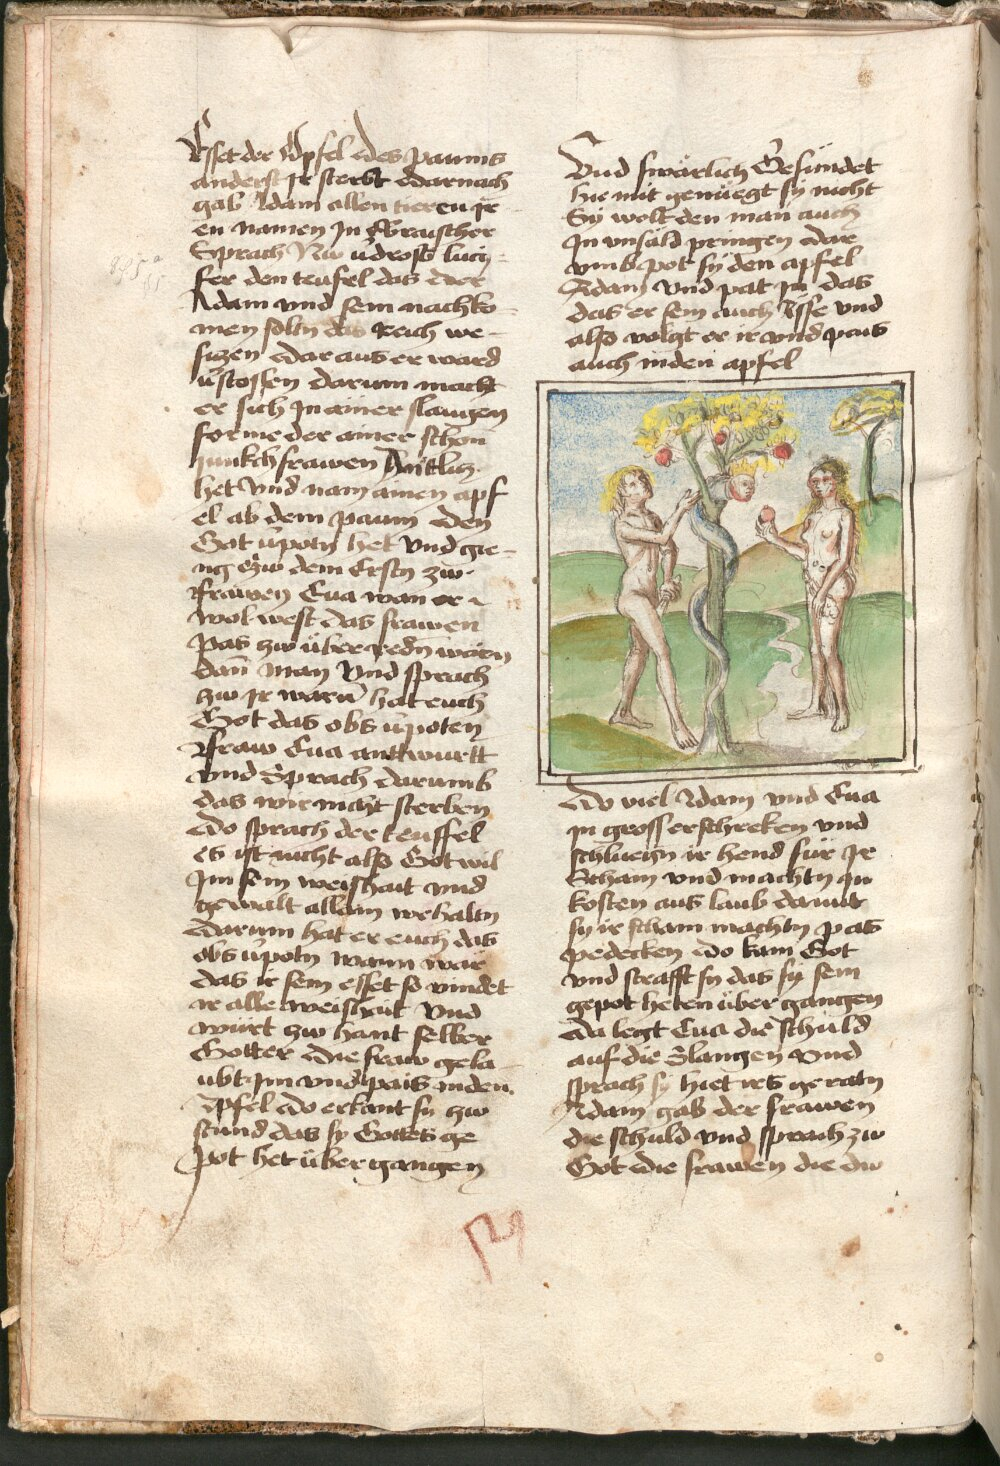 Esset der Apfel des paums
anderst Ir sterbt Darnach
gab Adam allen tieren Ir
en namen In Ebraischer
Sprach Nw v̈dross luci-
fer den teufel das der
Adam vnd sein nachko-
men soltn das Reich we-
siczen Dar aus er ward
v̈stossen darum macht
er sich In ainer slangen
forme der ainer schon
junkchfrawen Antlicz
het Vnd nam ainen apf
el ab dem paum den
Got v̈potn het Vnd gie-
ng zw dem Erstn zw
frawen Eua wan er
wol west das frawen
Pas zw über redn̄ wärn
dan̄ Man Vnd sprach
zw Ir warum̄ hat euch
Got das obs v̈poten
Fraw Eua antwurtt
vnd Sprach darumb
das wir nicht sterben
Do sprach der teuffel
es ist nicht also Got wil
Im sein weishait vnd
gewalt allain wehaltn
Darum hat er euch das
obs v̈potn wann wär
das ir sein esset so vindet
ir alle weishait Vnd
würt zw hant selber
Götter Die fraw gela-
ubt im vnd pais in den
Apfel Do erkant sy zw
stund das sy Gottes ge
pot het über gangen
Vnd swärlich Gesündet
hie mit genüegt sy nicht
Sy wolt den man auch
In vnsäld pringen dar
vmb pot sy den apfel
Adam vnd pat in das
das er sein auch Ässe vnd
also volgt er ir vnd pais
auch in den apfel
Do viel Adam vnd Eua
in gross erschreken vnd
schluegn ir hend für Ir
Scham vnd machtn In
kosten aus laub damit
sy ir scham mochtn pas
pedecken Do kam Got
vnd strafft sy das sy sein
gepot heten über gangen
Da legt Eua die schuld
auf die Slangen vnd
sprach sy hiet irs geratn
Adam gab der frawen
die schuld vnd sprach zw
Got die frawen die dw